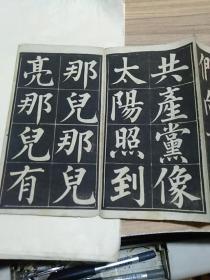 共產黨像
太陽照到
那兒那兒
亮那兒有